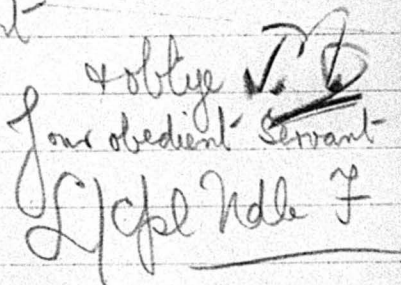 & oblige
Your obedient Servant
L/Cpl Ndle F